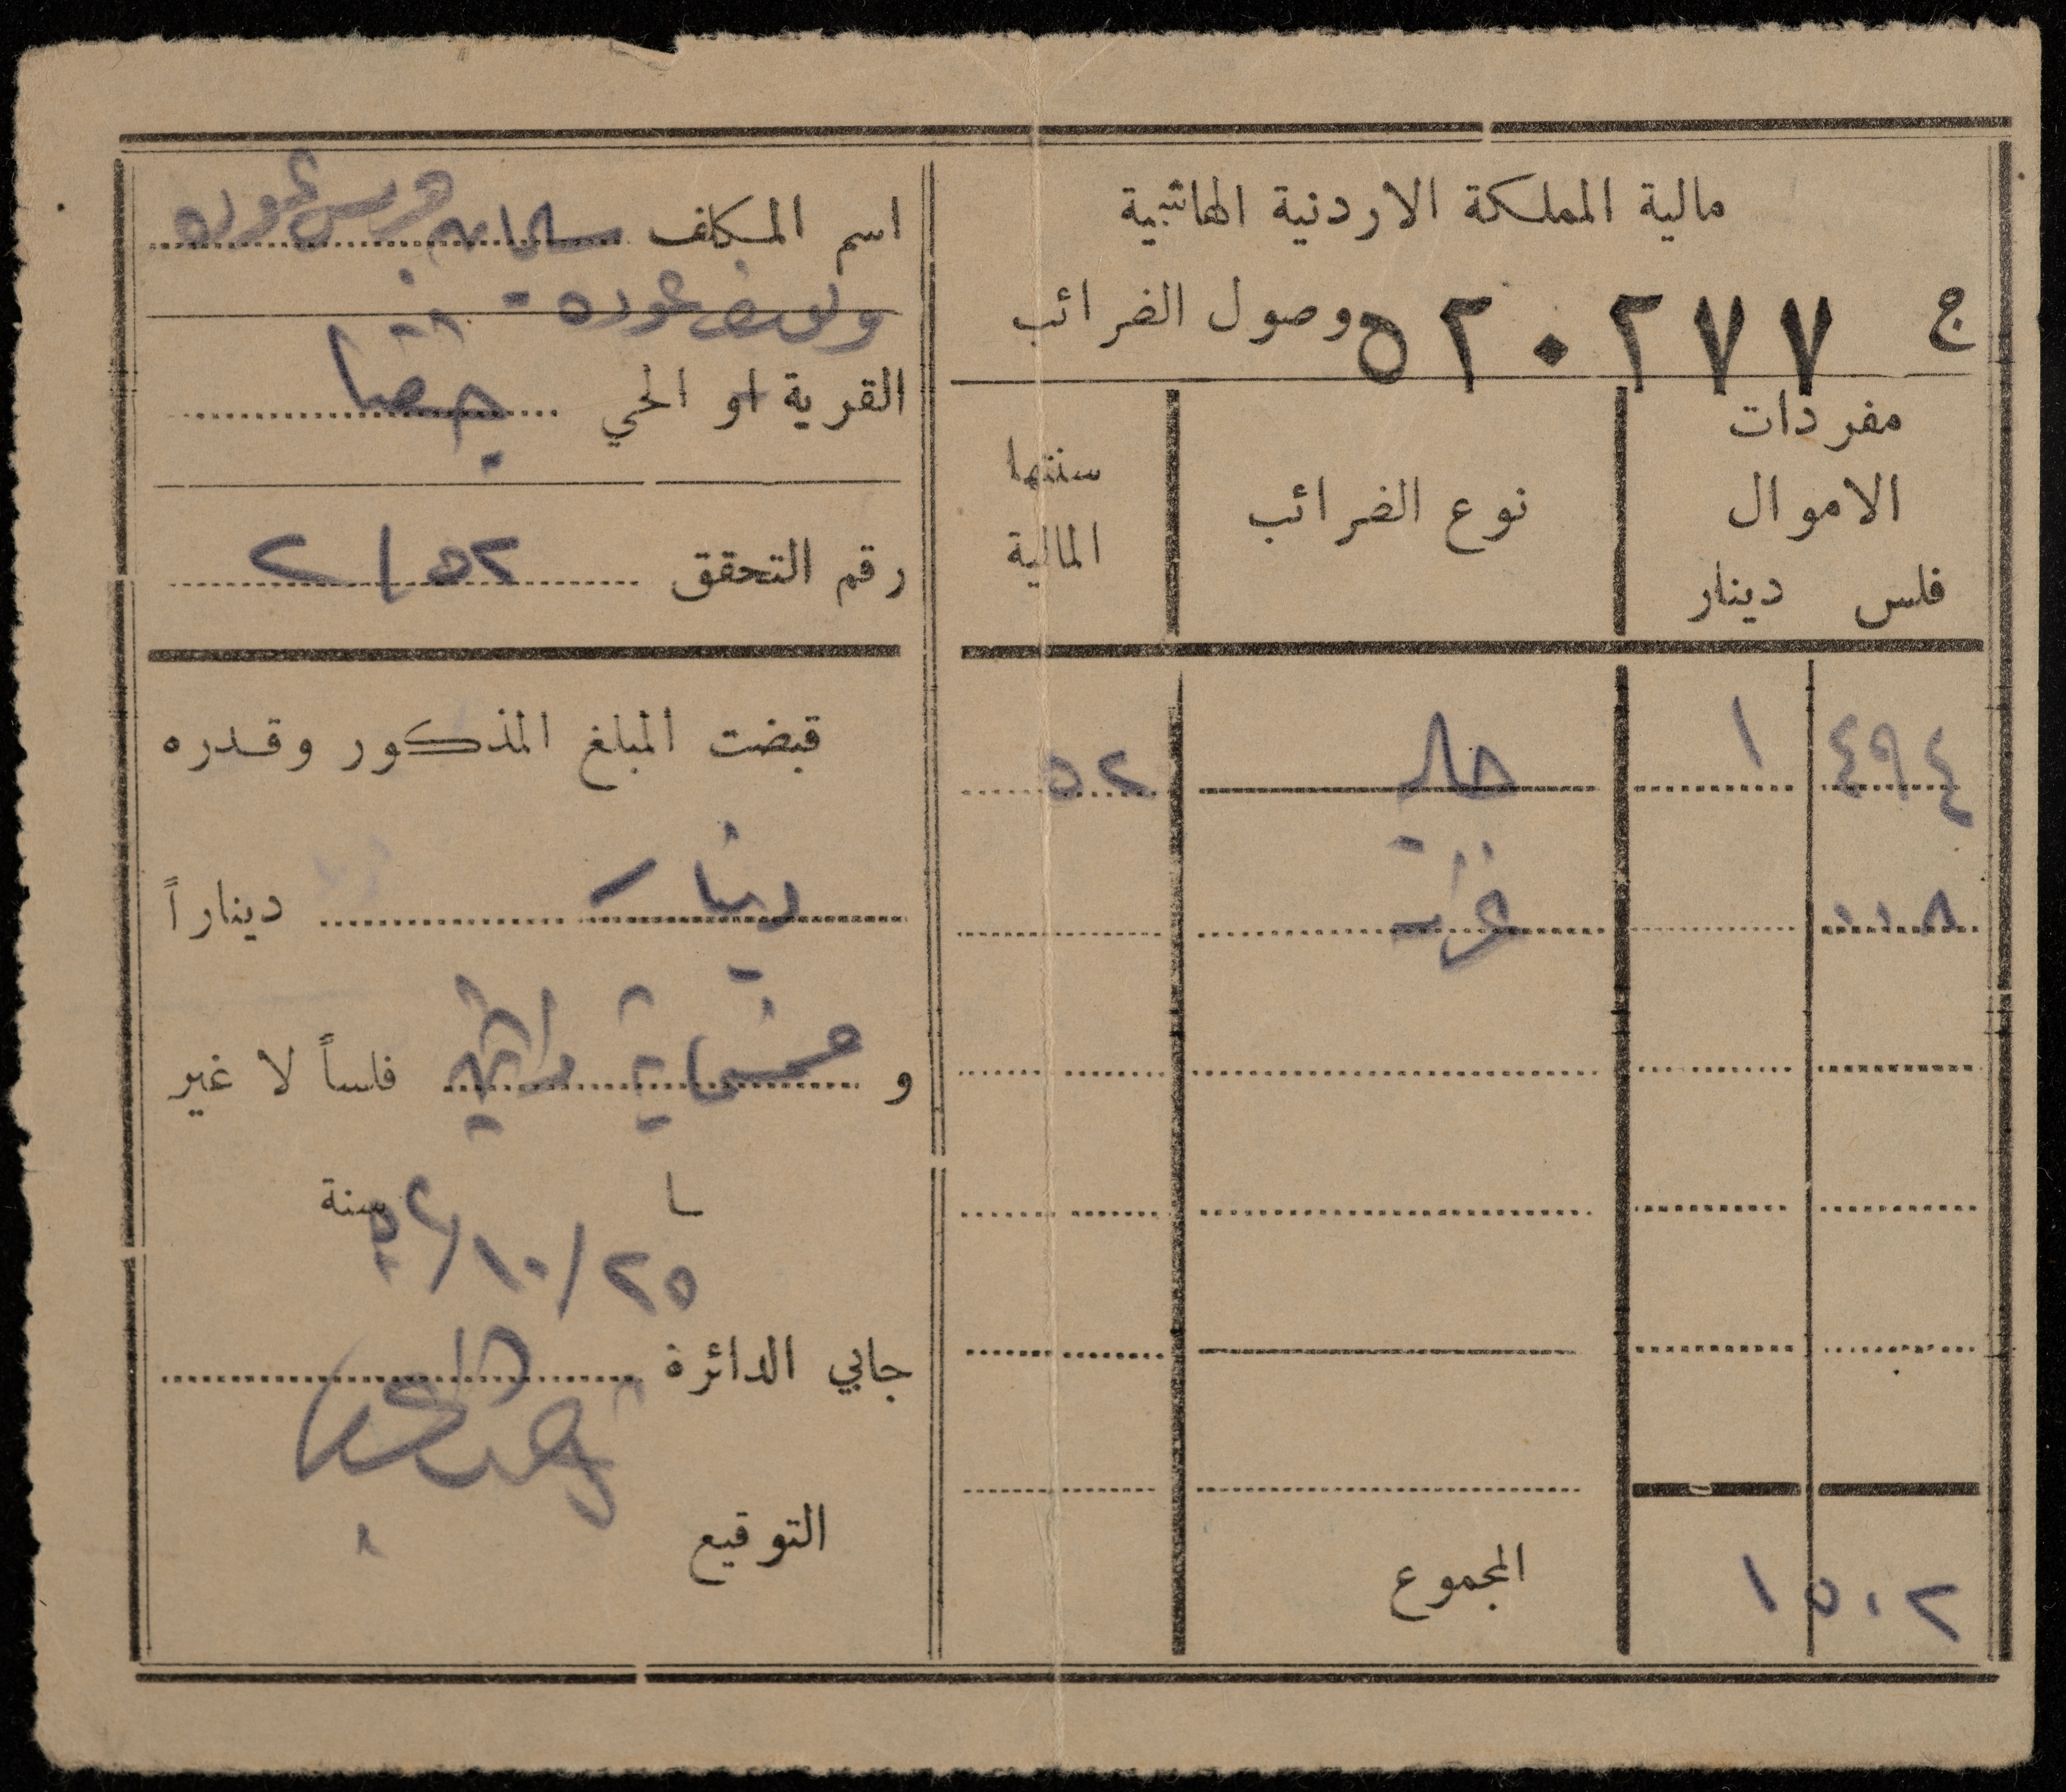 مالية المملكة الاردنية الهاشمية
ج ٥٢٠٢٧٧ وصول الضرائب
مفردات الاموال
فلس دينار
نوع الضرائب
سنتها المالية
٤٩٤ ١ حالية ٥٢
٠٠٨ غرامة
المجموع
١ ٥٠٢
اسم المكلف سليمان عوده
ويوسف عوده -
القرية او الحي
رقم التحقق ٥٢ / ٢
قبضت المبلغ المذكور وقدره
دينار ديناراً
و خمسماية واثنين فلساً لا غير
سنة
٢٥/١٠/٥٢
جابي الدائرة
التوقيع